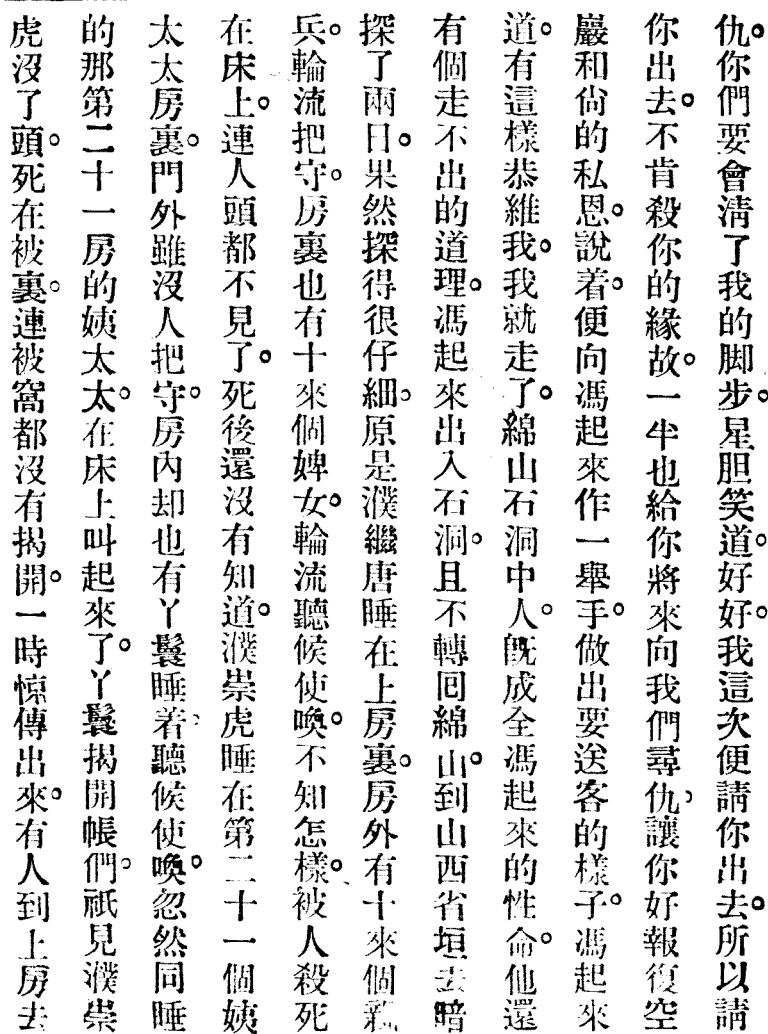 仇。你們要會淸了我的脚步。星胆笑道。好好。我這次便請你出去。所以請
你出去。不肯殺你的緣故。一半也給你將來向我們尋仇。讓你好報復空
巖和尙的私恩。說着。便向馮起來作一舉手。做出要送客的樣子。馮起來
道。有這樣恭維我。我就走了。綿山石洞中人。旣成全馮起來的性命。他還
有個走不出的道理。馮起來出入石洞。且不轉囘綿山。到山西省垣去暗
探了兩日。果然探得很仔細。原是濮繼唐睡在上房裏。房外有十來個親
兵。輪流把守。房裏也有十來個婢女。輪流聽候使喚。不知怎樣。被人殺死
在床上。連人頭都不見了。死後還沒有知道。濮崇虎睡在第二十一個姨
太太房裏。門外雖沒人把守。房內却也有丫鬟睡着。聽候使喚。忽然同睡
的那第二十一房的姨太太。在床上叫起來了。丫鬟揭開帳們。祇見濮崇
虎沒了頭。死在被裏。連被窩都沒有揭開。一時惊傳出來。有人到上房去